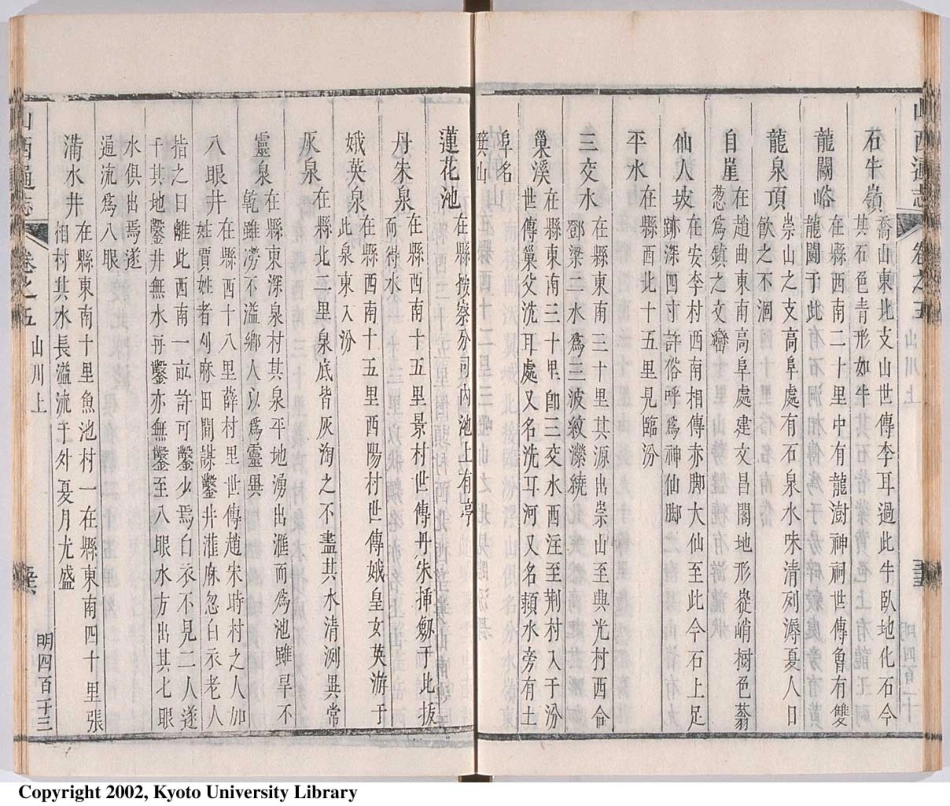 石牛嶺
喬山東北支山世傳李耳過此牛臥地化石今
其石色青形如牛
龍鬭峪
在縣西南二十里中有龍澍神祠世傳魯有雙
龍鬭于此
龍泉頂
崇山之支高阜處有石泉水味清列溽夏人日
飲之不涸
自崖
在趙曲東南高阜處建文昌閣地形嵸峭樹色蓊
葱為鎮之文巒
仙人坡
在安李村西南相傳赤脚大仙至此今石上足
跡深四寸許俗呼為神仙脚
平水
在縣西北十五里見臨汾
三交水
在縣東南三十里其源出崇山至典光村西合
鄧梁三水為三波紋濼繞
巢溪
在縣東南三十里即三交水西注至荆村入于汾
世傳巢父洗耳處又名洗耳河又名潁水旁有土
阜名
箕山
蓮花池
在縣按察分司内池上有亭
丹朱泉
在縣西南十五里景村世傳丹朱揷劔于此抜
而得水
娥英泉
在縣西南十五里西陽村世傳娥皇女英游于
此泉東入汾
灰泉
在縣北三里泉底皆灰淘之不盡其水清洌異常
靈泉
在縣東深泉村其泉平地湧出滙而為池雖旱不
乾雖澇不溢鄉人以為靈異
八眼井
在縣西十八里薛村里世傳趙宋時村之人加
姓賈姓者刈麻田間謀鑿井灌麻忽白衣老人
指之曰離此西南一畝許可鑿少焉白衣不見二人遂
于其地鑿井無水再鑿亦無鑿至八眼水方出其七眼
水俱出焉遂
過流為八眼
清水井
在縣東南十里魚池村一在縣東南四十里張
相村其水長溢流于外夏月尤盛
山西通志
卷之五
山川上
明四百二十三